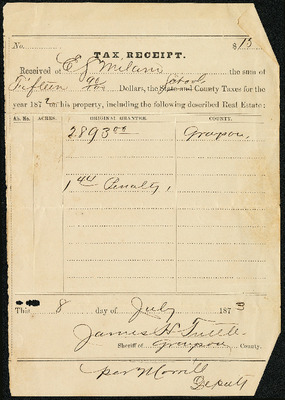 No. $15
TAX RECEIPT.
Received of E. J. Milam the sum of
Fifteen 90/100 Dollars, the State and School County Taxes for the
year 187 on his property, including the following described Real Estate:
Ab. No. ACRES. ORIGINAL GRANTEE. COUNTY.
2893 00 Grayson
Penalty,
This 8 day of July 187
James H Tuttle
Sheriff of Grayson County.
per Morrill
Deputy